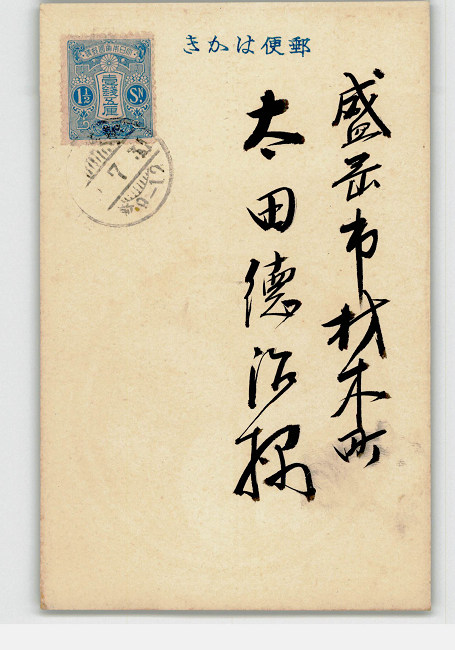 郵便はかき
盛岡市材木町
太田德治様
大日本帝國郵便
壹錢五厘
1½ Sn
7